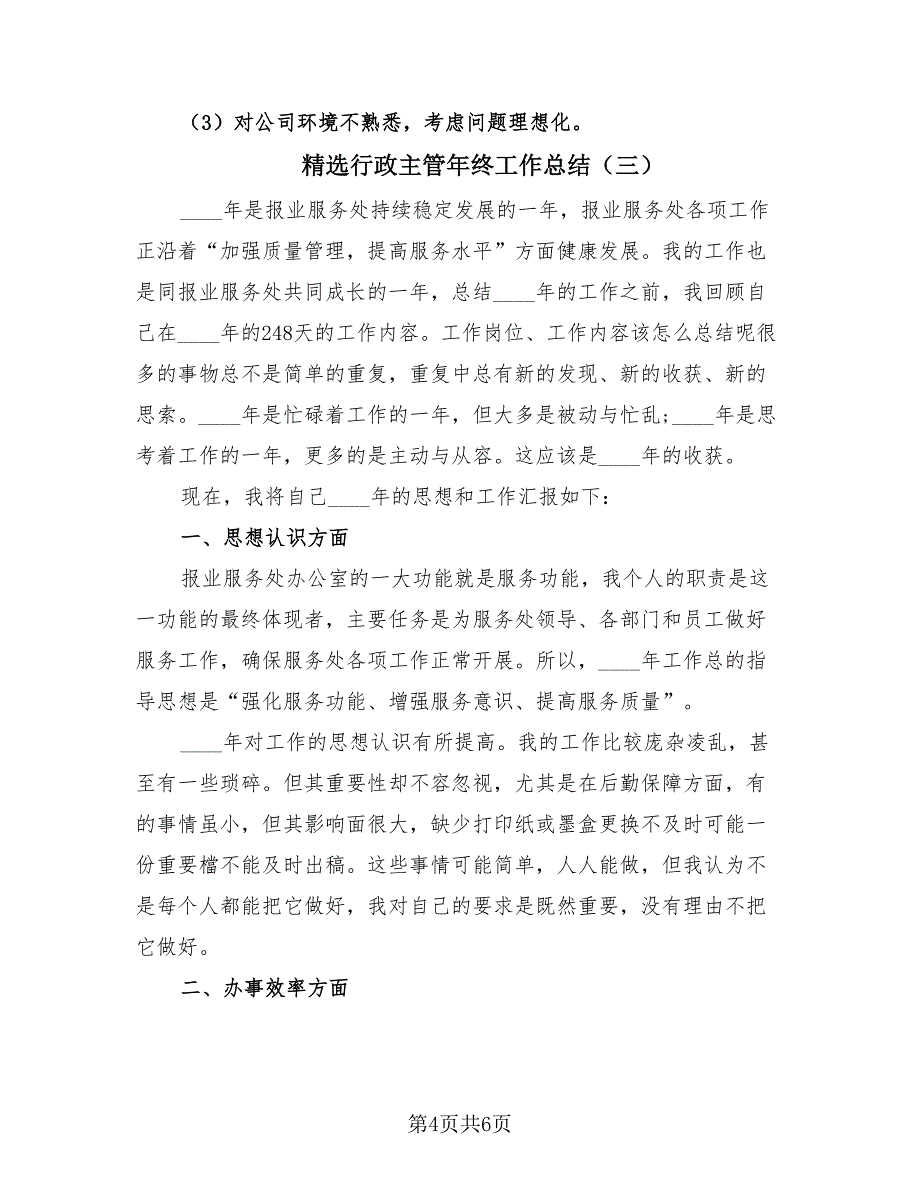 （3）对公司环境不熟悉，考虑问题理想化。
精选行政主管年终工作总结（三）
____年是报业服务处持续稳定发展的一年，报业服务处各项工作
正沿着“加强质量管理，提高服务水平”方面健康发展。我的工作也
是同报业服务处共同成长的一年，总结____年的工作之前，我回顾自
己在____年的248天的工作内容。工作岗位、工作内容该怎么总结呢很
多的事物总不是简单的重复，重复中总有新的发现、新的收获、新的
思索。____年是忙碌着工作的一年，但大多是被动与忙乱;____年是思
考着工作的一年，更多的是主动与从容。这应该是____年的收获。
现在，我将自己____年的思想和工作汇报如下：
一、思想认识方面
报业服务处办公室的一大功能就是服务功能，我个人的职责是这
一功能的最终体现者，主要任务是为服务处领导、各部门和员工做好
服务工作，确保服务处各项工作正常开展。所以，____年工作总的指
导思想是“强化服务功能、增强服务意识、提高服务质量”。
____年对工作的思想认识有所提高。我的工作比较庞杂凌乱，甚
至有一些琐碎。但其重要性却不容忽视，尤其是在后勤保障方面，有
的事情虽小，但其影响面很大，缺少打印纸或墨盒更换不及时可能一
份重要檔不能及时出稿。这些事情可能简单，人人能做，但我认为不
是每个人都能把它做好，我对自己的要求是既然重要，没有理由不把
它做好。
二、办事效率方面
第4页共6页